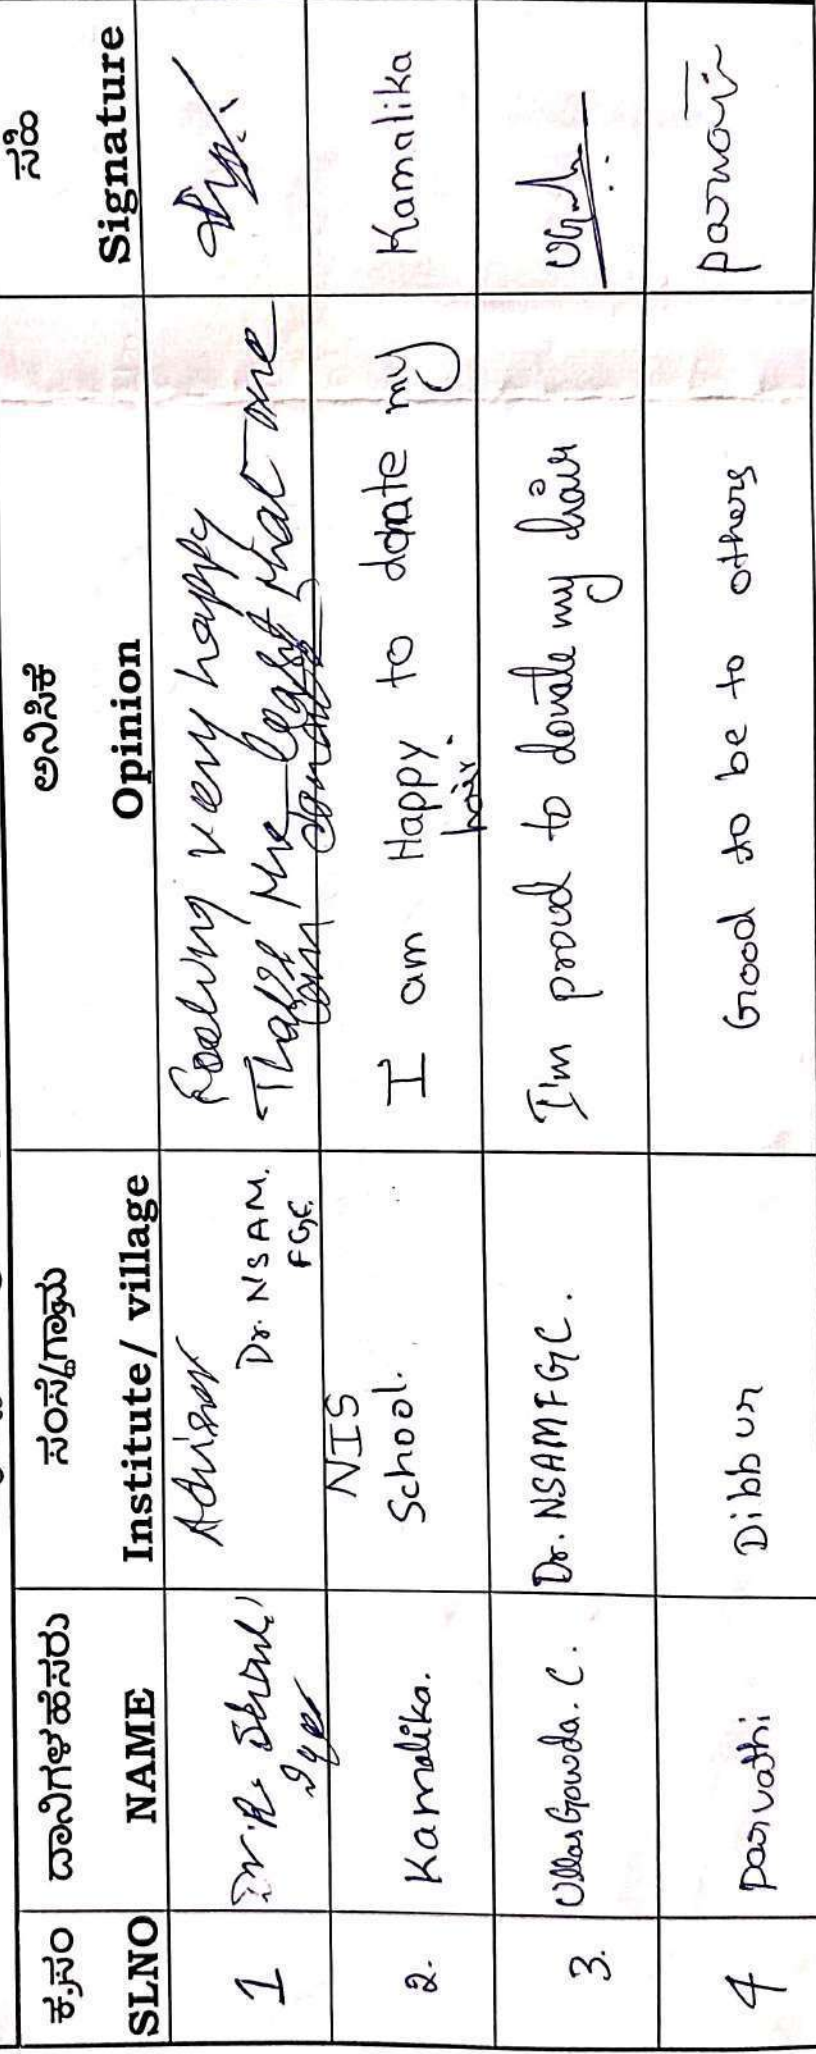 ಕ್ರ.ಸಂ ದಾನಿಗಳ ಹೆಸರು ಸಂಸ್ಥೆ/ಗ್ರಾಮ ಅನಿಸಿಕೆ ಸಹಿ
SLNO NAME Institute/ village Opinion Signature
1 Advisor Dr. NSAM. FGC. Feeling very happy
That's the least that one
can donate
2. Kamalika. NIS School. I am Happy to donate my hair. Kamalika
3. Ullas Gowda. C. Dr. NSAMFGC. I'm proud to donate my hair
4 parvathi Dibbur Good to be to others parvati